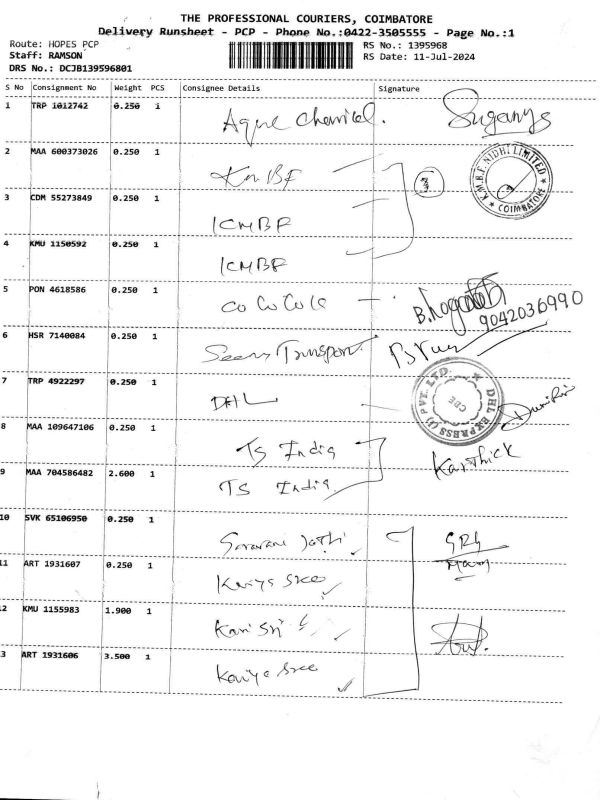 THE PROFESSIONAL COURIERS, COIMBATORE
Delivery Runsheet - PCP - Phone No.:0422-3505555 - Page No.:1
Route: HOPES PCP RS No.: 1395968
Staff: RAMSON RS Date: 11-Jul-2024
DRS No.: DCJB139596801
S No Consignment No Weight PCS Consignee Details Signature
1 TRP 1012742 0.250 1 Aqua Chemical. Suganya
2 MAA 600373026 0.250 1 KMBF 3
K.M.B.F. NIDHI LIMITED ★ COIMBATORE ★
3 CDM 55273849 0.250 1 KMBF
4 KMU 1150592 0.250 1 KMBF
5 PON 4618586 0.250 1 Co Co Cola
9042036990
6 HSR 7140084 0.250 1 Transport
7 TRP 4922297 0.250 1 DHL
DHL EXPRESS (I) PVT. LTD. ★ CBE
8 MAA 109647106 0.250 1 TS India Karthick
9 MAA 704586482 2.600 1 TS India
10 SVK 65106950 0.250 1 Saravana Jothi
11 ART 1931607 0.250 1 Kaviya Sree
12 KMU 1155983 1.900 1 Kavi Sri
3 ART 1931606 3.500 1 Kaviya Sree